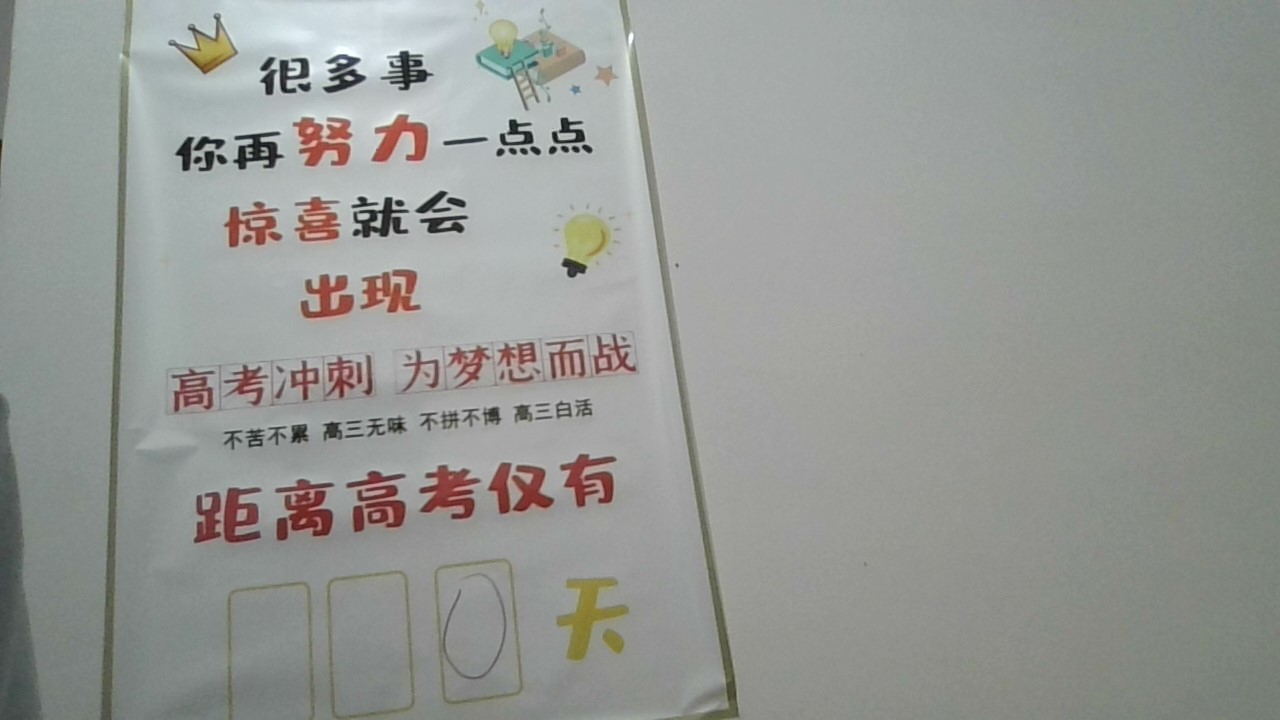 很多事
你再努力一点点
惊喜就会
出现
高考冲刺 为梦想而战
不苦不累 高三无味 不拼不博 高三白活
距离高考仅有
0 天